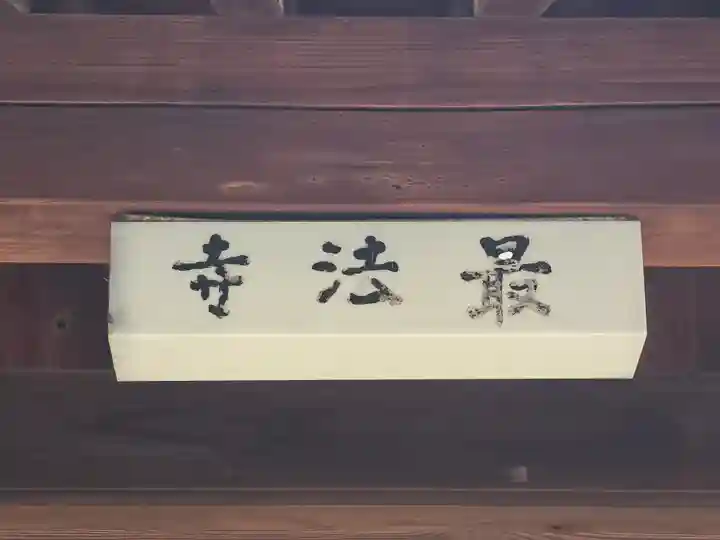 最法寺